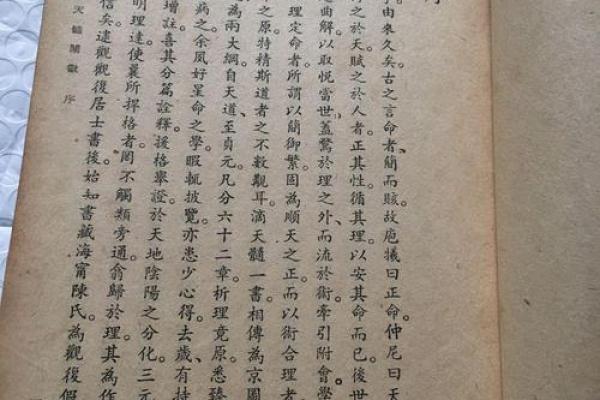 由來久矣古之言命者、簡而賅故庖犧曰正命。仲尼曰天
之於天賦之於人者。正其性。循其理以安其命而已。後世
曲解以取悅當世。蓋鶩於理之外、而流於術。牽引附會。學
理定命者。所謂以簡御繁。固為順天之正。而以術合理者
之原。特精斯道者之不數觀耳。滴天髓一書。相傳為京圖
為兩大綱。自天道、至貞元。凡分六十二章。析理竟原。悉臻
病之余。夙好星命之學。暇輒披覽。亦患少心得。去歲、有持
增註。喜其分篇詮釋。援格舉證。於天地陰陽之分化。三元
明理達。使曩所捍格者。罔不觸類旁通。翕歸於理。其為作
信矣。逮觀觀復居士書後。始知書藏海甯陳氏。為觀復假
天髓闡微 序